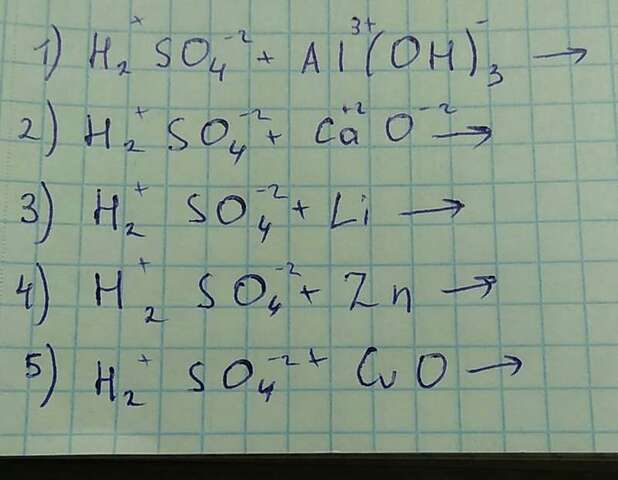 1) H₂⁺ SO₄⁻² + Al³⁺(OH)₃⁻ →
2) H₂⁺ SO₄⁻² + Ca⁺² O⁻² →
3) H₂⁺ SO₄⁻² + Li →
4) H₂⁺ SO₄⁻² + Zn →
5) H₂⁺ SO₄⁻² + CuO →